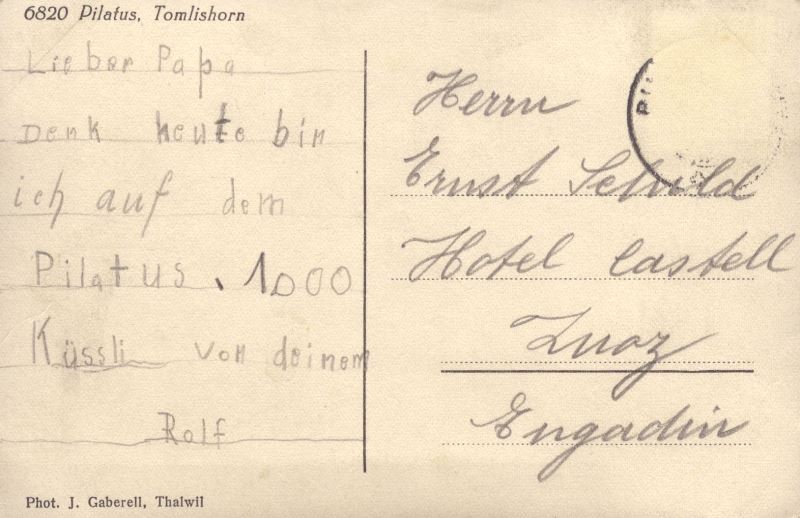 6820 Pilatus, Tomlishorn
Lieber Papa
Denk heute bin
ich auf dem
Pilatus. 1000
Küssli von deinem
Rolf
Phot. J. Gaberell, Thalwil
Herrn
Ernst Schild
Hotel Castell
Zuoz
Engadin